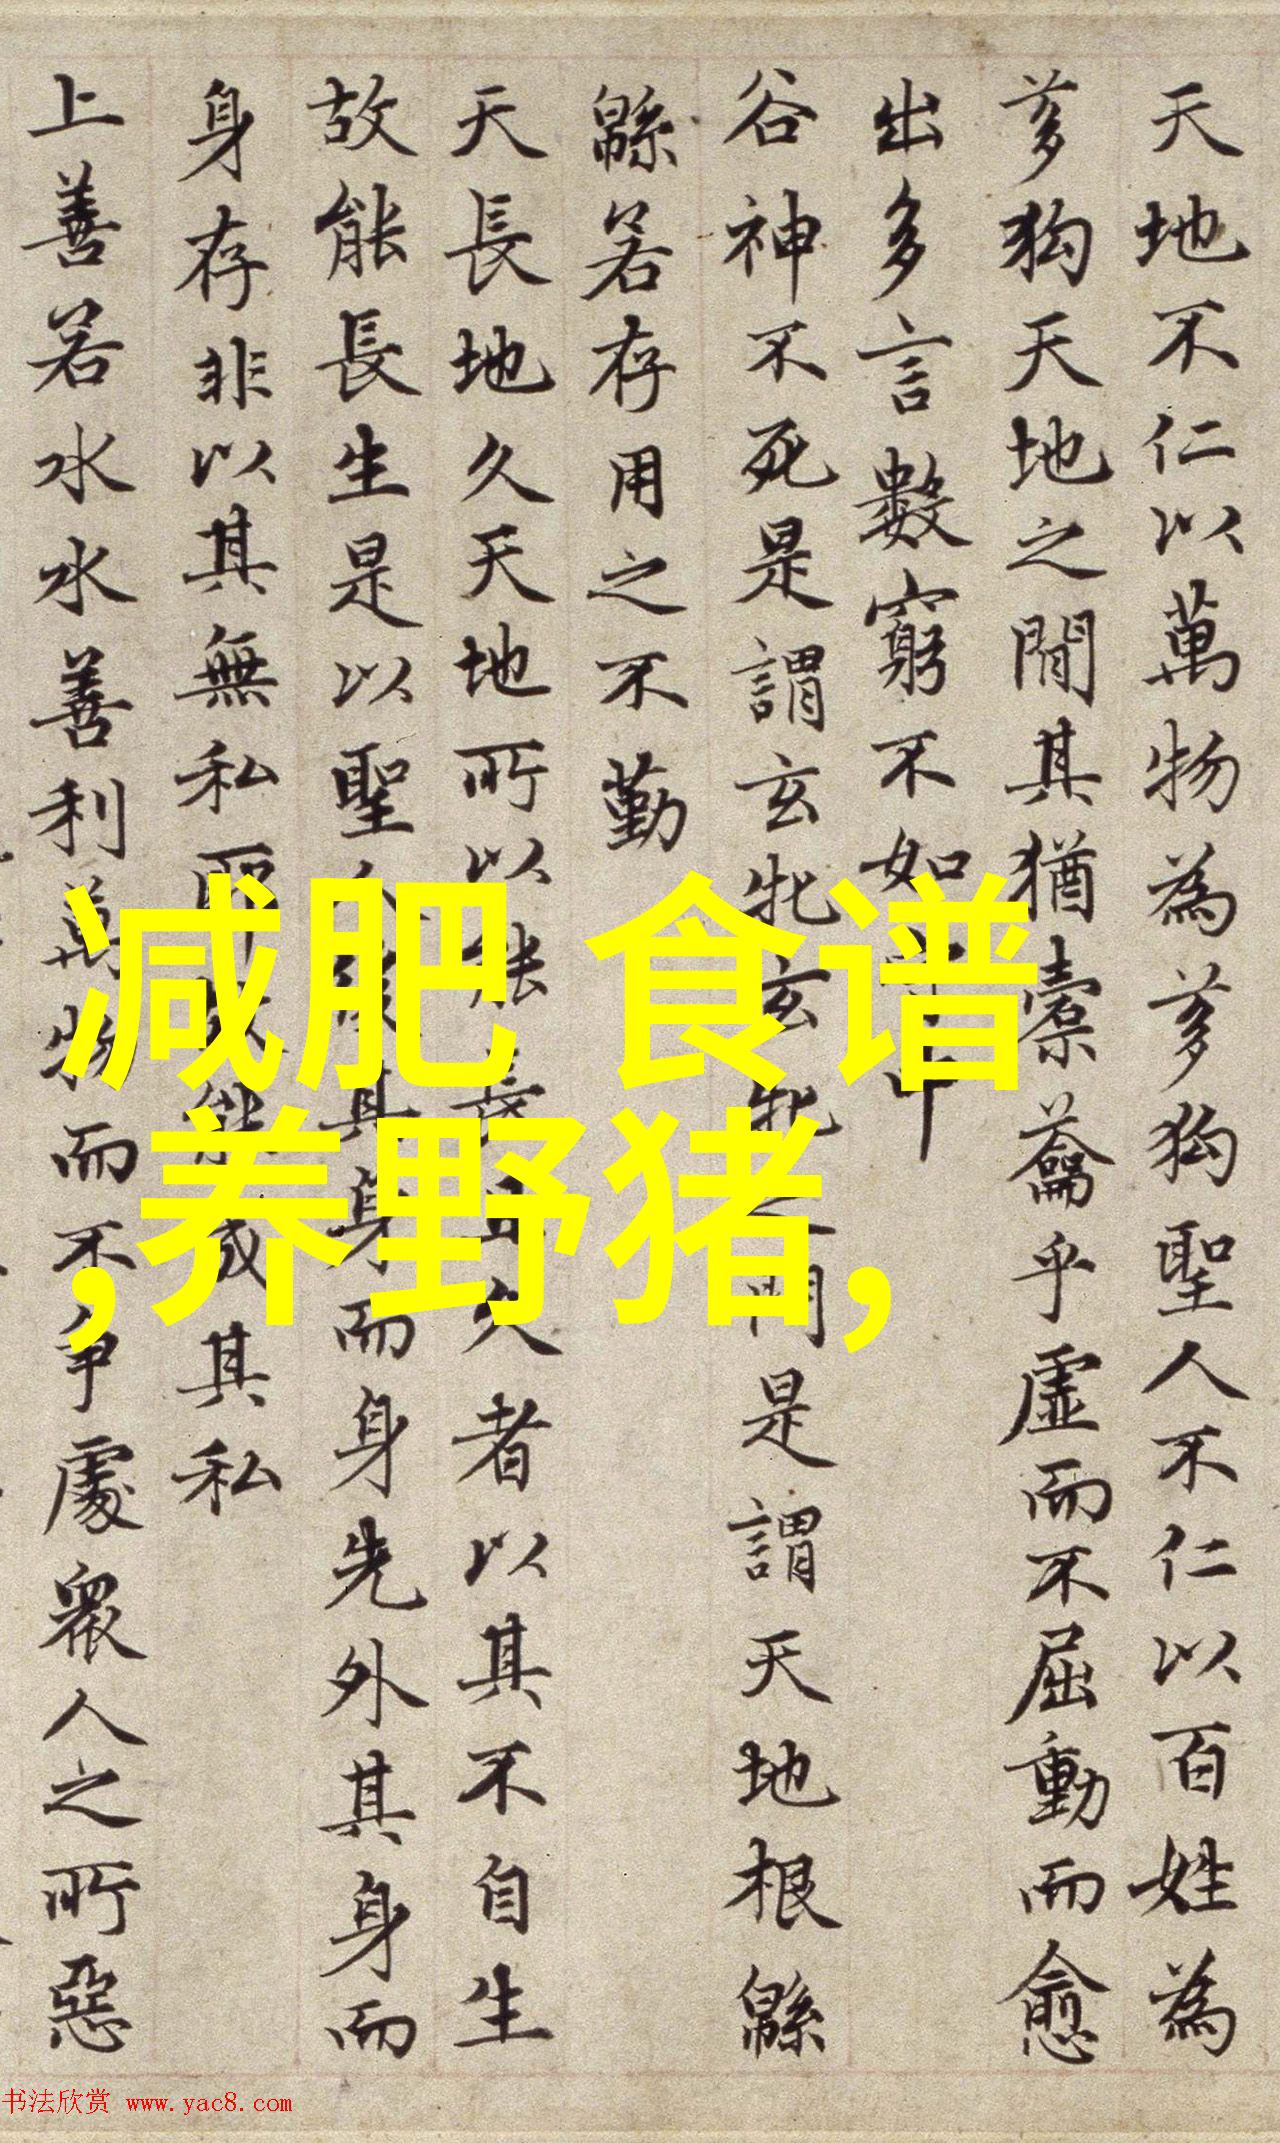 天地不仁以萬物為芻狗聖人不仁以百姓為
芻狗天地之間其猶橐籥乎虛而不屈動而愈
出多言數窮不如守中
谷神不死是謂玄牝玄牝之門是謂天地根緜
緜若存用之不勤
天長地久天地所以能長且久者以其不自生
故能長生是以聖人後其身而身先外其身而
身存非以其無私耶故能成其私
上善若水水善利萬物而不爭處衆人之所惡
减肥 食谱
,养野猪,
书法欣赏 www.yac8.com